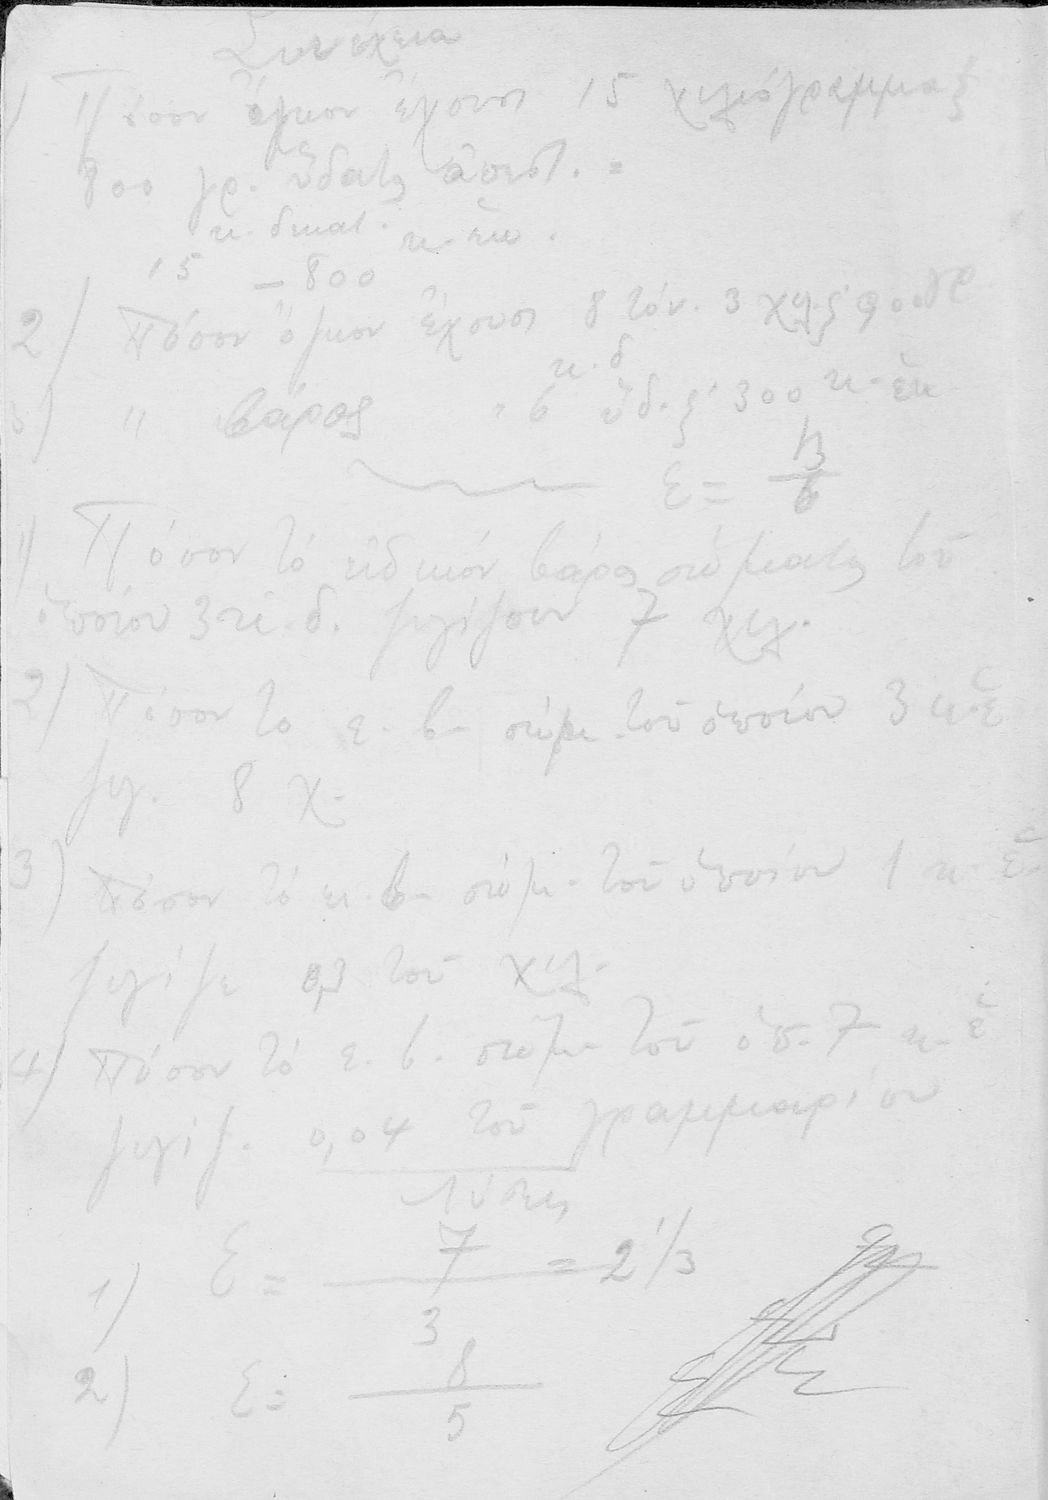 Συνέχεια
1) Πόσον ὄγκον ἔχουσι 15 χιλιόγραμμα ξ
800 γρ. ὕδατος ἀπεστ. =
κ. δεκατ. κ. ἑκ.
15 – 800
2) Πόσον ὄγκον ἔχουσι 8 τόν. 3 χιλ. ξ 900 γρ
κ. δ
3) " βάρος " 6 ὕδ. ξ 300 κ. ἑκ
Ε = Β/
1) Πόσον τό εἰδικόν βάρος σώματος τοῦ
ὁποίου 3 κ. δ. ζυγίζουν 7 χιλ.
2) Πόσον το ε. β. σώμ. τοῦ ὁποίου 3 κ. ἑ
ζυγ. 8 χ.
3) Πόσον τό ει. β. σώμ. τοῦ ὁποίου 1 κ. ἑ.
ζυγίζει 0,3 τοῦ χιλ.
4) Πόσον τό ε. β. σώμ. τοῦ ὁπ. 7 κ. ἑ
ζυγίζ. 0,04 τοῦ γραμμαρίου
Λύσεις
1) Ε = 7/3 = 2 1/3
2) Ε = 8/5